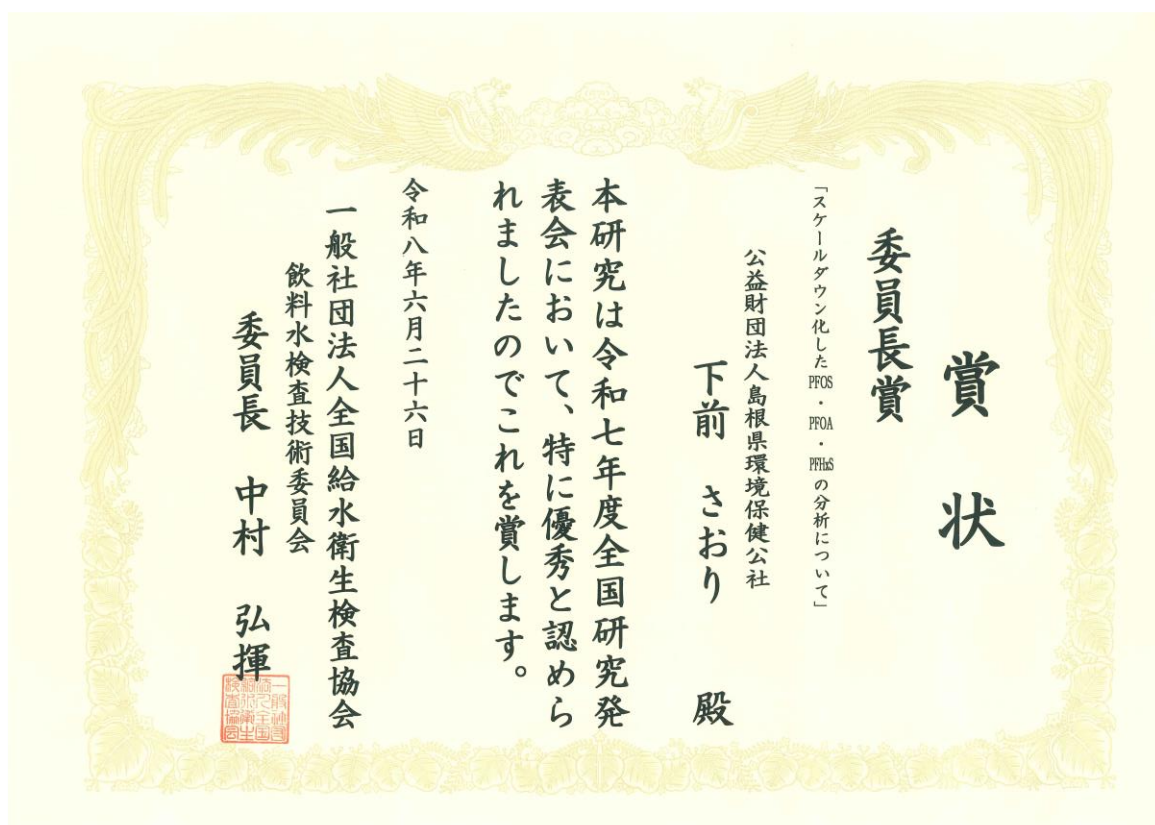 賞状
委員長賞
「スケールダウン化したPFOS・PFOA・PFHxSの分析について」
公益財団法人島根県環境保健公社
下前 さおり 殿
本研究は令和七年度全国研究発
表会において、特に優秀と認めら
れましたのでこれを賞します。
令和八年六月二十六日
一般社団法人全国給水衛生検査協会
飲料水検査技術委員会
委員長 中村 弘揮